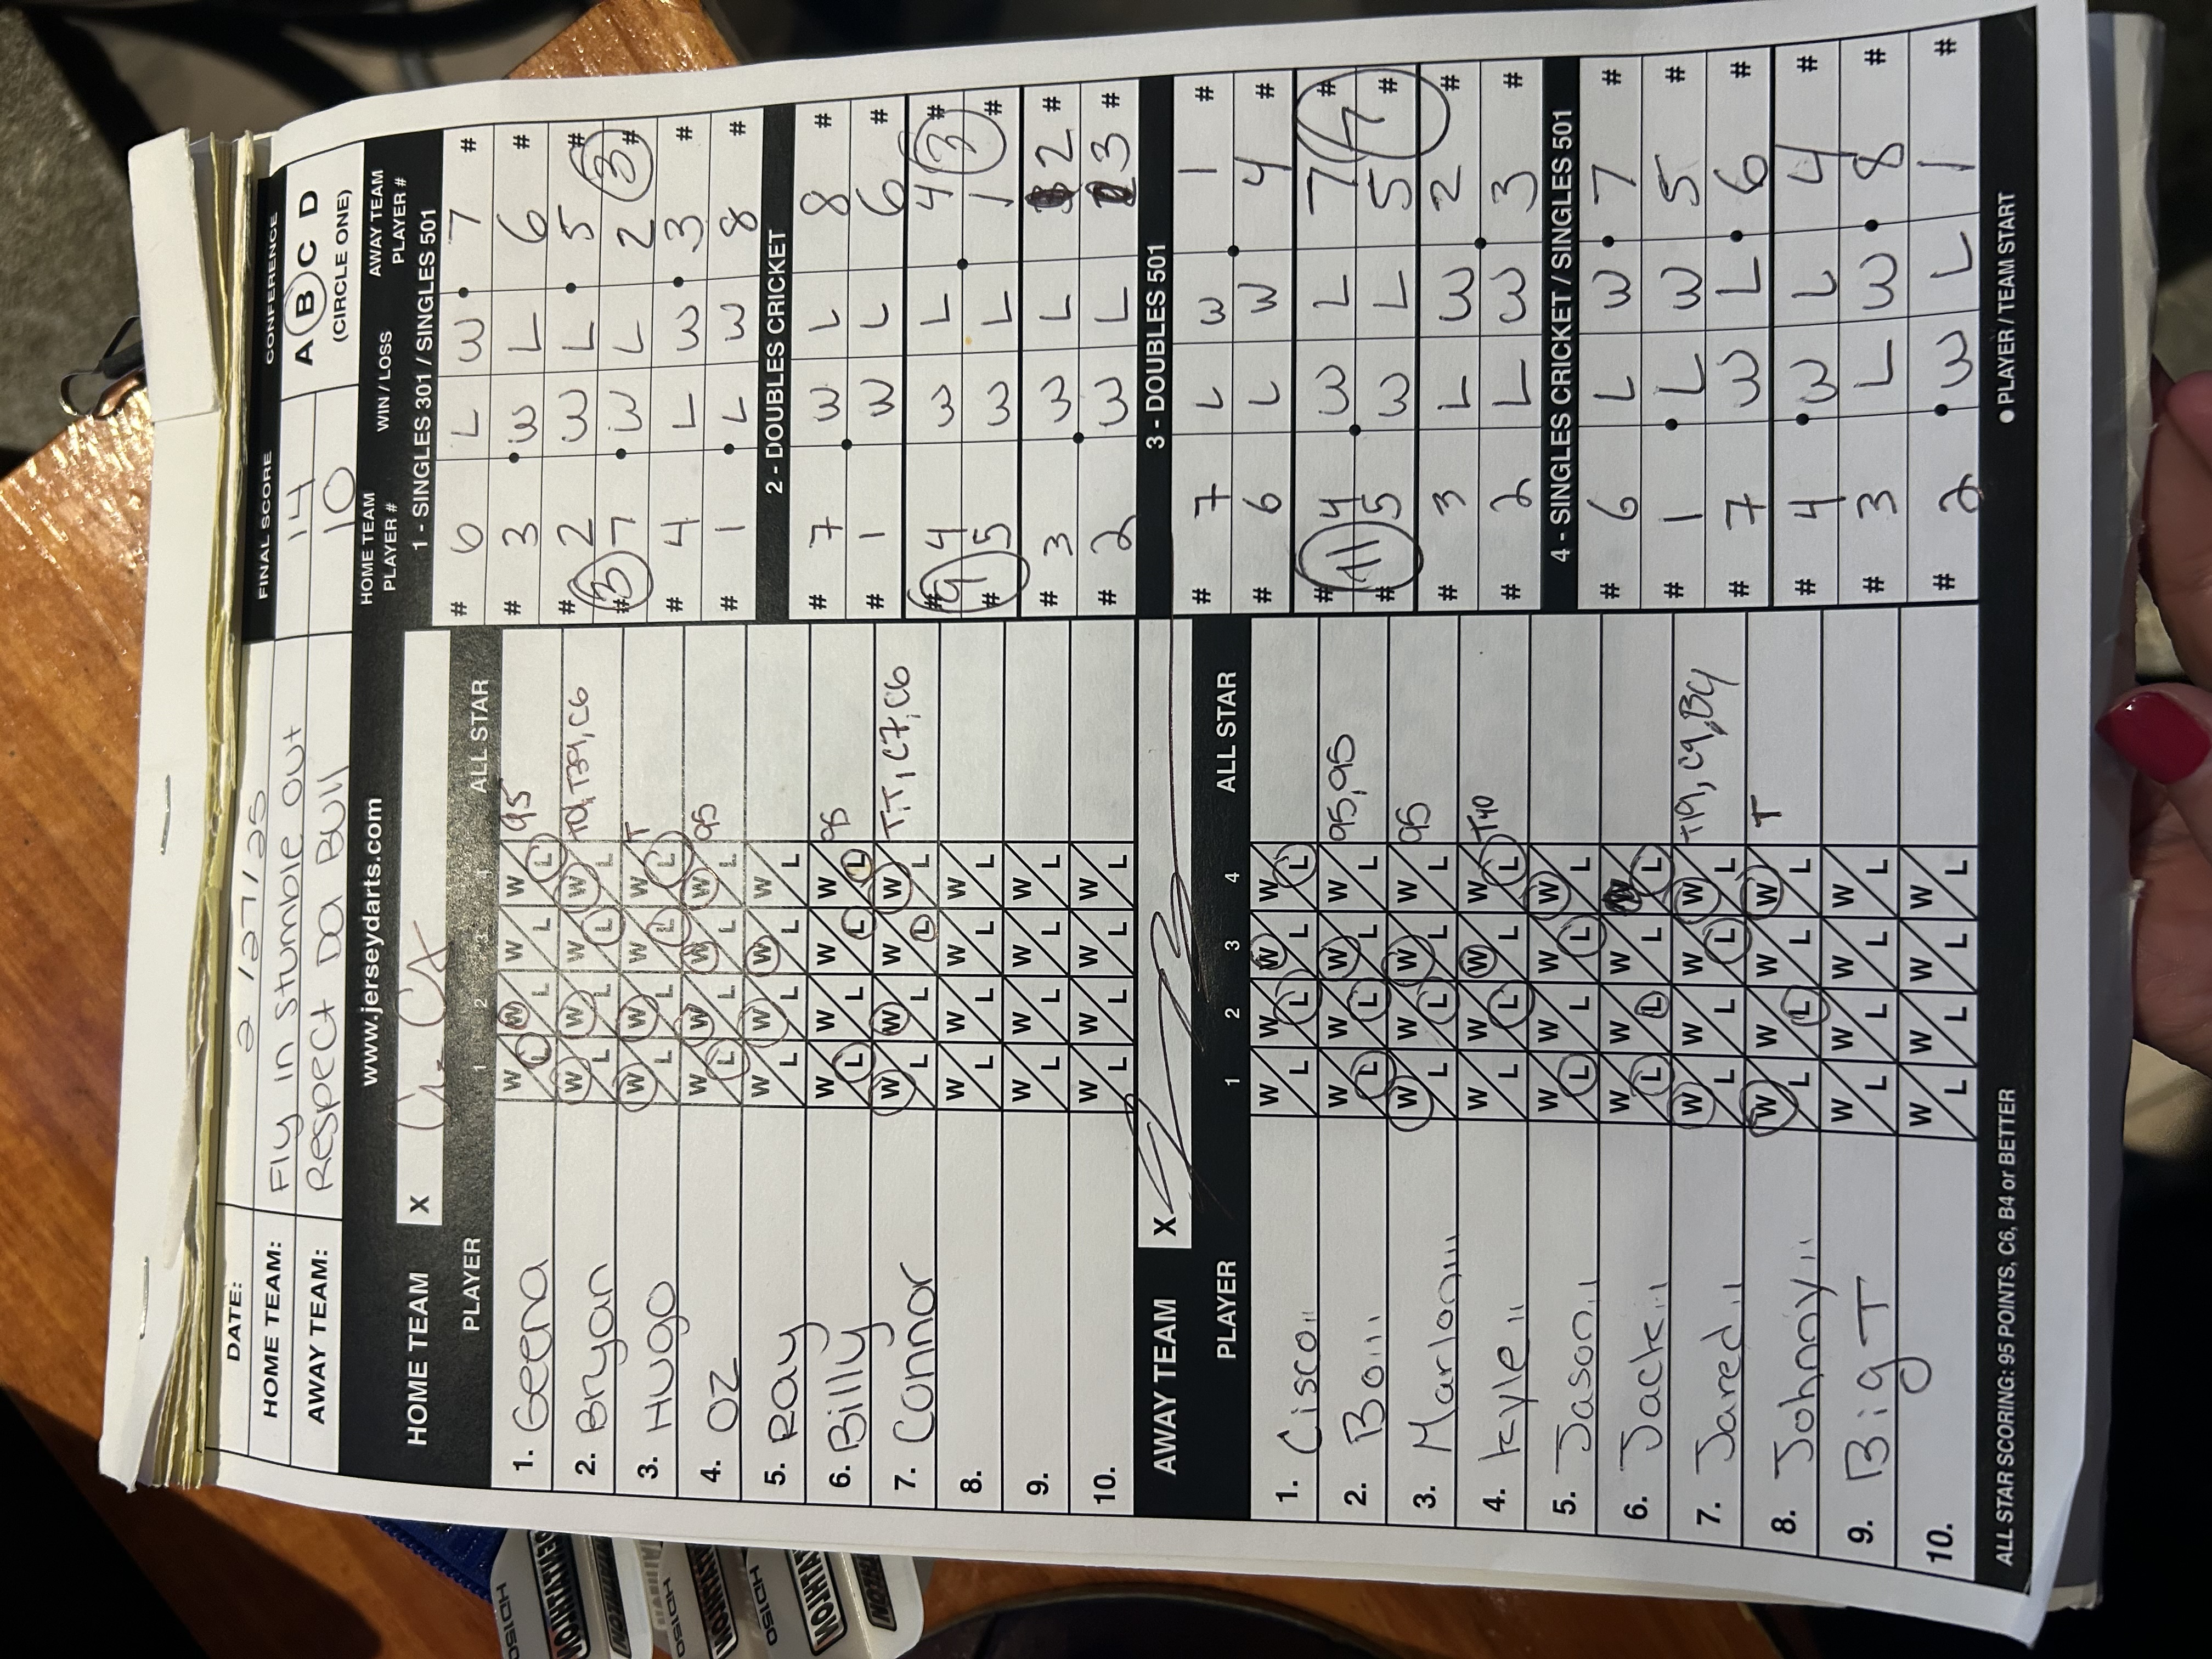 DATE: 2/27/25
FINAL SCORE
CONFERENCE
HOME TEAM: Fly in Stumble Out 14
A B C D
(CIRCLE ONE)
AWAY TEAM: Respect Da Bull 10
www.jerseydarts.com
HOME TEAM PLAYER #
WIN / LOSS
AWAY TEAM PLAYER #
HOME TEAM X
PLAYER 1 2 3 4 ALL STAR
1. Geena W L W L W L W L 95
2. Bryan W L W L W L W L C6
3. Hugo W L W L W L W L T
4. OZ W L W L W L W L 95
5. Ray W L W L W L W L
6. Billy W L W L W L W L 95
7. Connor W L W L W L W L T, T, C7, C6
8. W L W L W L W L
9. W L W L W L W L
10. W L W L W L W L
1 - SINGLES 301 / SINGLES 501
# 6 L W 7 #
# 3 W L 6 #
# 2 W L 5 #
# 7 W L 2 #
3 3
# 4 L W 3 #
# 1 L W 8 #
2 - DOUBLES CRICKET
# 7 W L 8 #
# 1 W L 6 #
# 4 W L 4 #
9 3
# 5 W L 1 #
# 3 W L 2 #
# 2 W L 3 #
AWAY TEAM X
PLAYER 1 2 3 4 ALL STAR
1. Cisco W L W L W L W L
2. Bo W L W L W L W L 95, 95
3. Marlon W L W L W L W L 95
4. Kyle W L W L W L W L T40
5. Jason W L W L W L W L
6. Jack W L W L W L L
7. Jared W L W L W L W L T19, C9, B4
8. Johnny W L W L W L W L T
9. Big T W L W L W L W L
10. W L W L W L W L
3 - DOUBLES 501
# 7 L W 1 #
# 6 L W 4 #
# 4 W L 7 #
11 7
# 5 W L 5 #
# 3 L W 2 #
# 2 L W 3 #
4 - SINGLES CRICKET / SINGLES 501
# 6 L W 7 #
# 1 L W 5 #
# 7 W L 6 #
# 4 W L 4 #
# 3 L W 8 #
# 2 W L 1 #
ALL STAR SCORING: 95 POINTS, C6, B4 or BETTER
● PLAYER / TEAM START